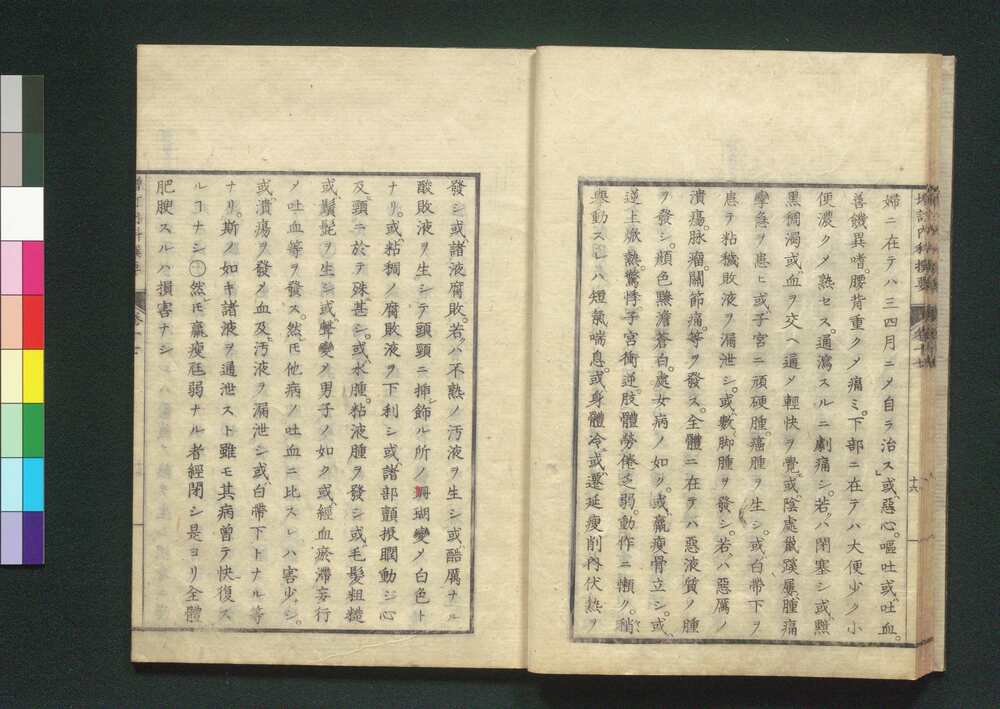 婦ニ在テハ三四月ニメ自ラ治ス」或惡心。嘔吐或吐血。
善饑異嗜。腰背重クメ痛ミ。下部ニ在テハ大便少ク小
便濃クメ熱セス。通瀉スルニ劇痛シ。若ハ閉塞シ或黑
黑稠濁或血ヲ交ヘ通メ輕快ヲ覺。或陰處鼠蹊屢腫痛
攣急ヲ患ヒ或子宮ニ頑硬腫。癌腫ヲ生シ。或白帶下ヲ
患テ粘穢敗液ヲ漏泄シ。或數脚腫ヲ發シ。若ハ惡厲ノ
潰瘍。脉瘤。關節痛。等ヲ發ス。全體ニ在テハ惡液質ノ腫
ヲ發シ。顔色黲澹蒼白。處女病ノ如ク。或羸瘦骨立シ。或
逆上㷔熱。驚悸子宮衝逆。肢體勞倦乏弱。動作ニ懶ク。稍
與動スレハ短氣喘息。或身體冷或遷延瘦削內伏熱ヲ
十六
發シ或諸液腐敗。若ハ不熟ノ汚液ヲ生シ或酷厲ナル
酸敗液ヲ生シテ頭頸ニ揷飾ル所ノ珊瑚變メ白色ト
ナリ。或粘稠ノ腐敗液ヲ下利シ或諸部顫掀瞤動シ心
及頸ニ於テ殊甚シ。或水腫。粘液腫ヲ發シ或毛髮粗糙
或鬚髭ヲ生シ或聲變メ男子ノ如ク或經血瘀滯妄行
メ吐血等ヲ發ス。然𪜈他病ノ吐血ニ比スレハ害少シ。
或潰瘍ヲ發メ血及汚液ヲ漏泄シ或白帶下トナル等
ナリ。斯ノ如キ諸液ヲ通泄スト雖モ其病曾テ快復ス
ルヿナシ㊉然𪜈羸瘦尫弱ナル者經閉シ是ヨリ全體
肥腴スルハ損害ナシ